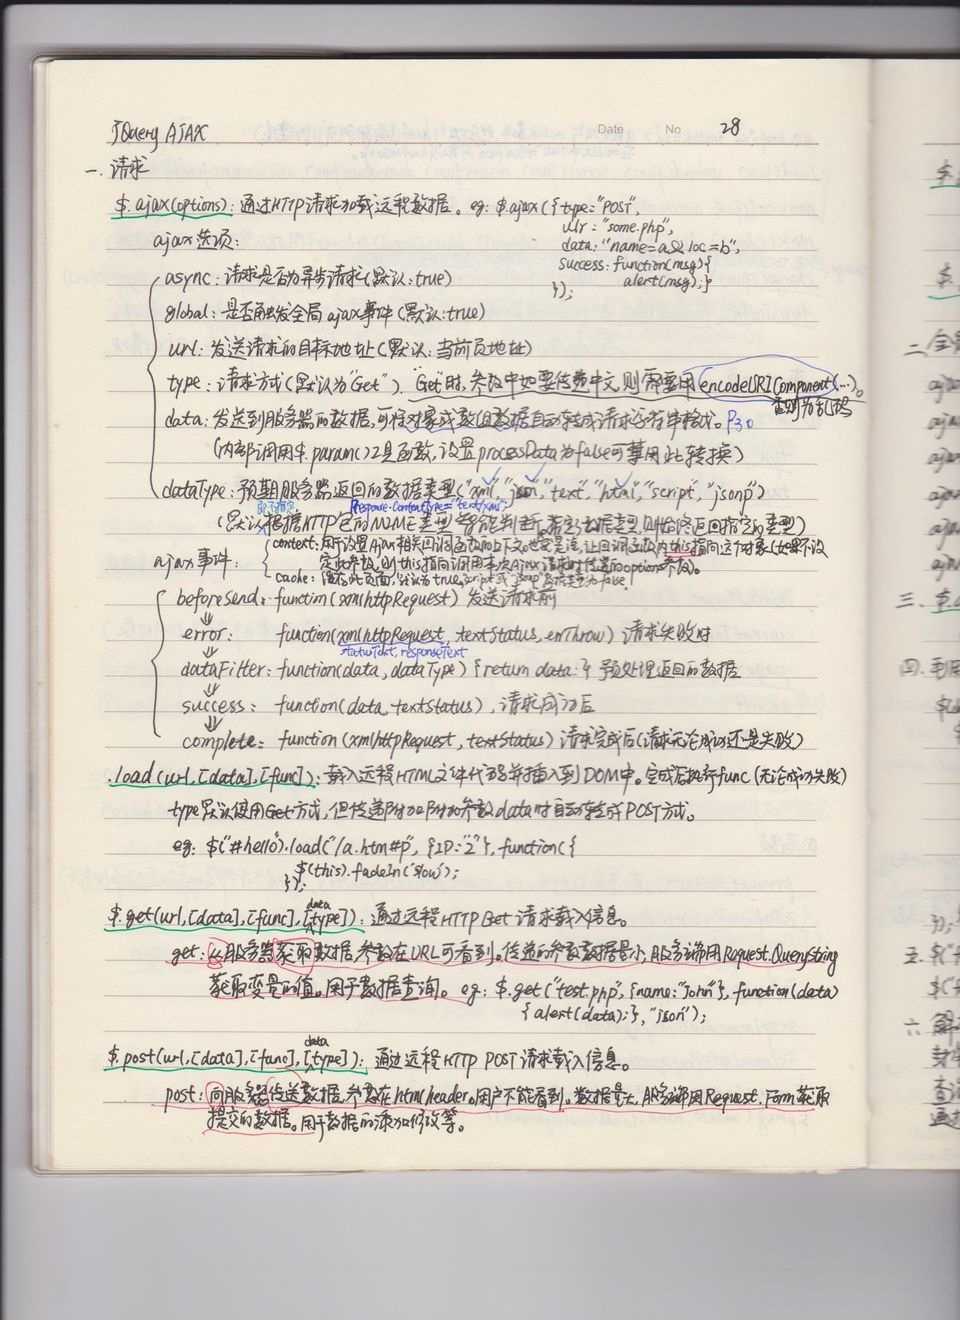 jQuery AJAX
Date No 28
一. 请求
$.ajax(options): 通过HTTP请求加载远程数据。 eg: $.ajax({type="POST",
ulr: "some.php",
data: "name=a&loc=b",
success: function(msg){
alert(msg);}
});
ajax选项:
async: 请求是否为异步请求(默认:true)
global: 是否触发全局ajax事件(默认:true)
url: 发送请求的目标地址(默认:当前页地址)
type: 请求方式(默认为"Get"). "Get"时,参数中如要传递中文,则需要用encodeURIComponent(…)。
否则为乱码
data: 发送到服务器的数据,可将对象或数组数据自动转成请求字符串格式。P30
(内部调用$.param()工具函数,设置processData为false可禁用此转换)
dataType: 预期服务器返回的数据类型("xml","json","text","html","script","jsonp")
Response.ContentType="text/xml";
(默认根据HTTP包的MIME类型智能判断,若 数据类型,则始终返回指定的类型)
ajax事件:
context: 用于设置Ajax相关回调函数的上下文。也就是说,让回调函数内this指向这个对象(如果不设
定此参数,则this指向调用本次Ajax请求时传递的options参数)。
cache: 缓存此页面,默认为true,script或"jsonp"数据类型为false
beforeSend: function(xmlhttpRequest) 发送请求前
error: function(xmlhttpRequest, textStatus, errThrow) 请求失败时
statusText, responseText
dataFilter: function(data, dataType) {return data;} 预处理返回的数据
success: function(data,textStatus), 请求成功后
complete: function(xmlhttpRequest, textStatus) 请求完成后(请求无论成功还是失败)
.load(url,[data],[func]): 载入远程HTML文件代码并插入到DOM中。完成后执行func (无论成功失败)
type默认使用Get方式,但传递附加附加参数data时自动转成POST方式。
eg: $("#hello").load("/a.htm#p", {ID:"2"}, function({
$(this).fadeIn('slow');
});
data
$.get(url,[data],[func],[type]): 通过远程HTTP Get请求载入信息。
get: 从服务器获取数据,参数在URL可看到。传递的参数数据量小,服务端用Request.QueryString
获取变量的值。用于数据查询。 eg: $.get("test.php",{name:"John"}, function(data)
{alert(data);},"json");
data
$.post(url,[data],[func],[type]): 通过远程HTTP POST请求载入信息。
post: 向服务器传送数据,参数在html header。用户不能看到。数据量大,服务端用Request.Form获取
提交的数据。用于数据的添加修改等。